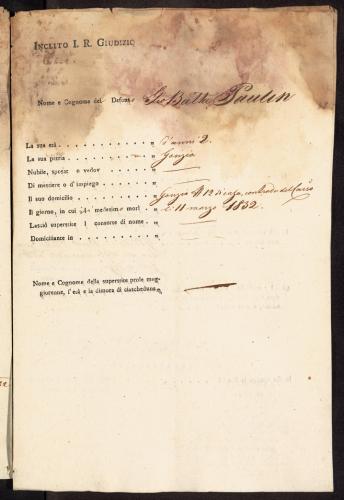 INCLITO I. R. GIUDIZIO
Nome e Cognome del Defunto Gio Batta Paulin
La sua età . . . . . . . . „ d'anni 2.
La sua patria . . . . . . . „ Gorizia
Nubile, sposat o vedov . . . „
Di mestiere o d'impiego . . . . „
Il suo domicilio . . . . . . „ Gorizia N 12 di casa, contrada del
Il giorno, in cui medesimo morì . „ li 11 marzo 1832.
Lasciò superstite consorte di nome . . „
Domiciliante in . . . . . . „
Nome e Cognome della superstite prole mag-
giorenne, l'età e la dimora di ciascheduna „